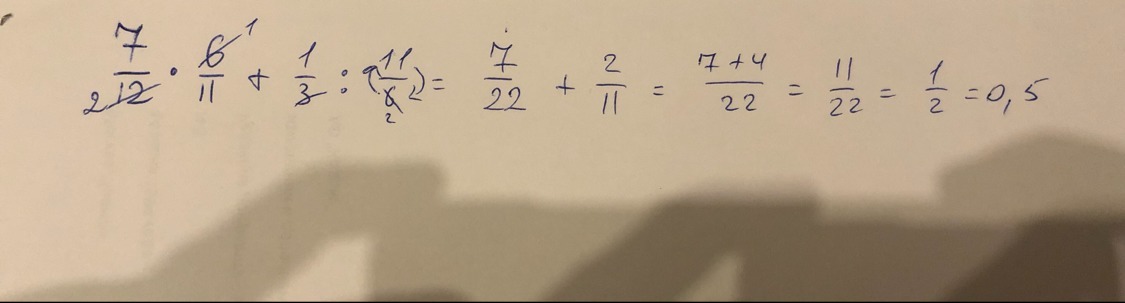 7/12 · 6/11 + 1/3 : (11/6) = 7/22 + 2/11 = 7+4/22 = 11/22 = 1/2 = 0,5